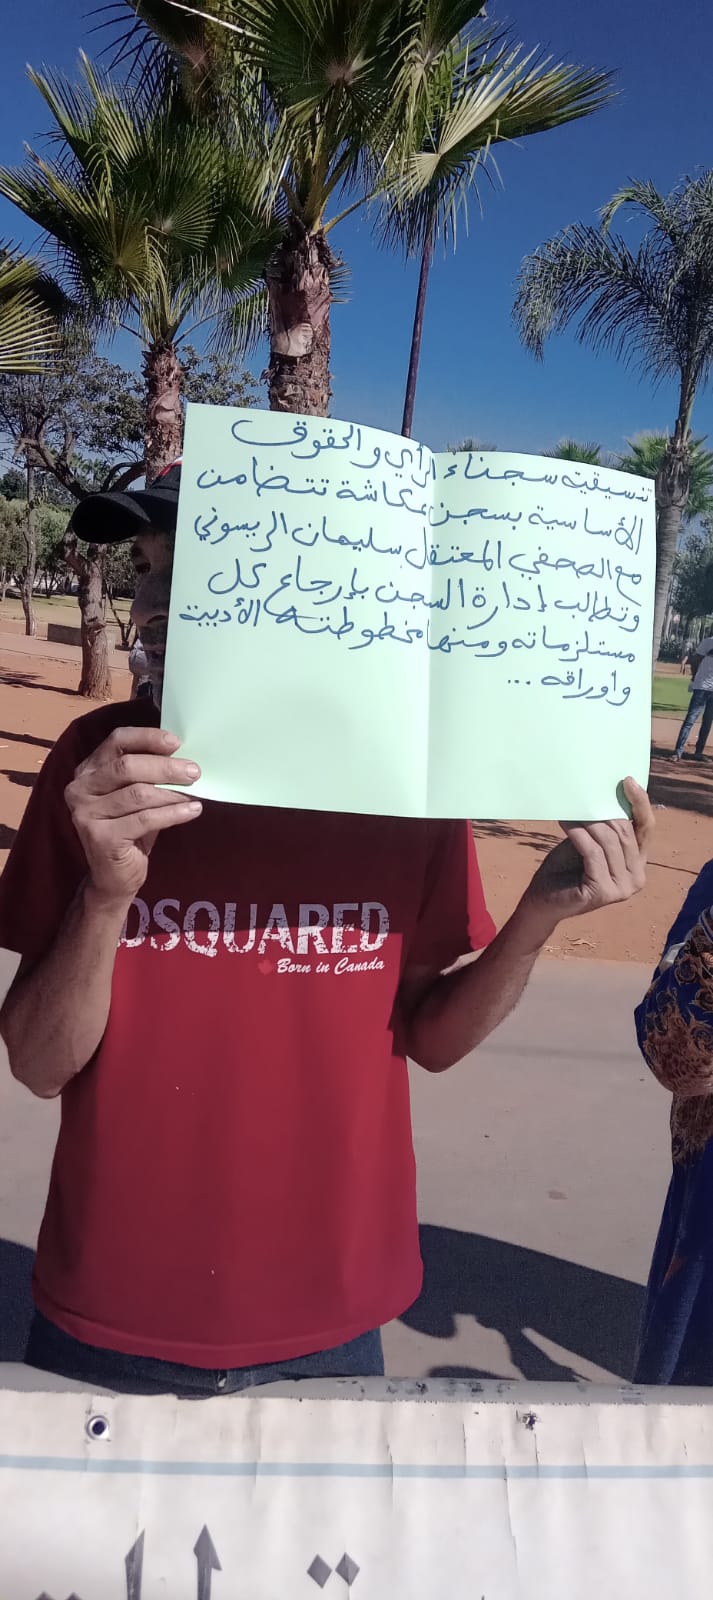 تنسيقية سجناء الرأي والحقوق
الأساسية بسجن عكاشة تتضامن
مع الصحفي المعتقل سليمان الريسوني
وتطالب إدارة السجن بإرجاع كل
مستلزماته ومنها مخطوطته الأدبية
واوراقه ...
DSQUARED
Born in Canada